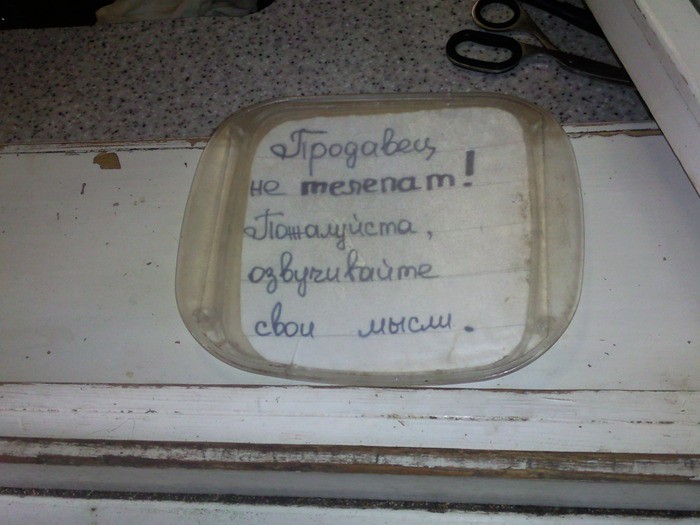 Продавец
не телепат!
Пожалуйста,
озвучивайте
свои мысли.